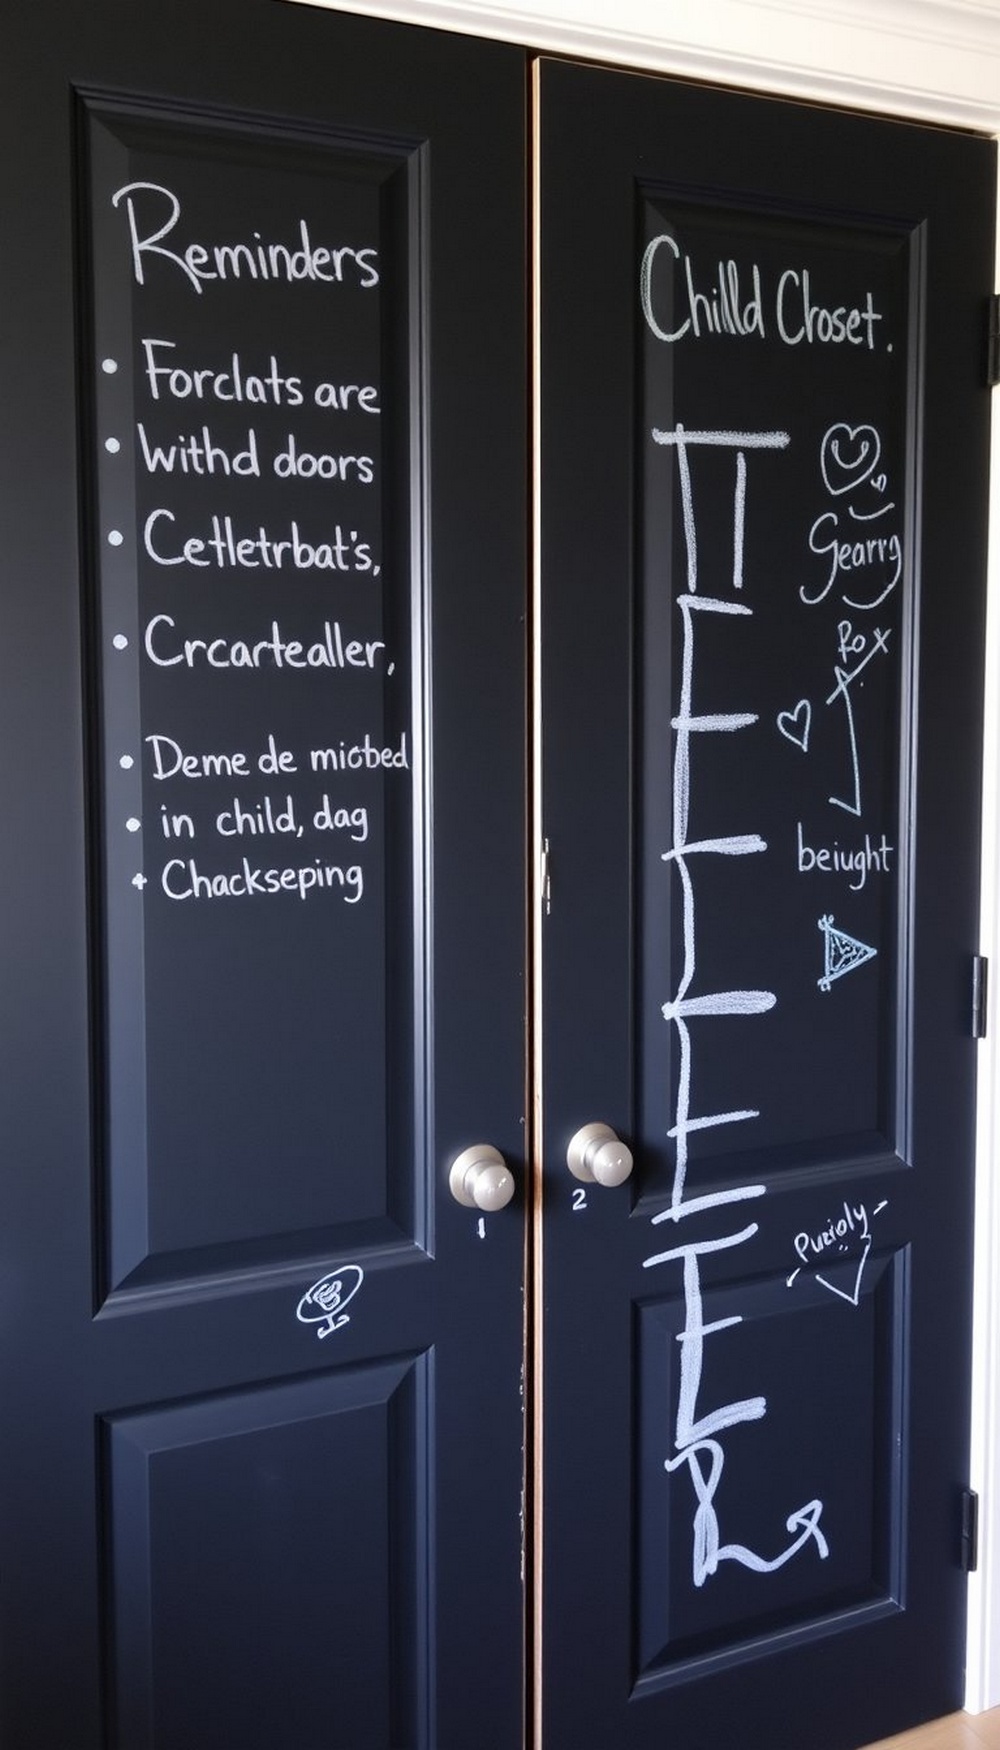 Reminders
Forclats are
Withd doors
Cetletrbat's,
Crcartealler,
Deme de miotbed
in child, dag
Chackseping
1
Chilld Closet.
Gearrg
Ro
beiught
2
Puzioly